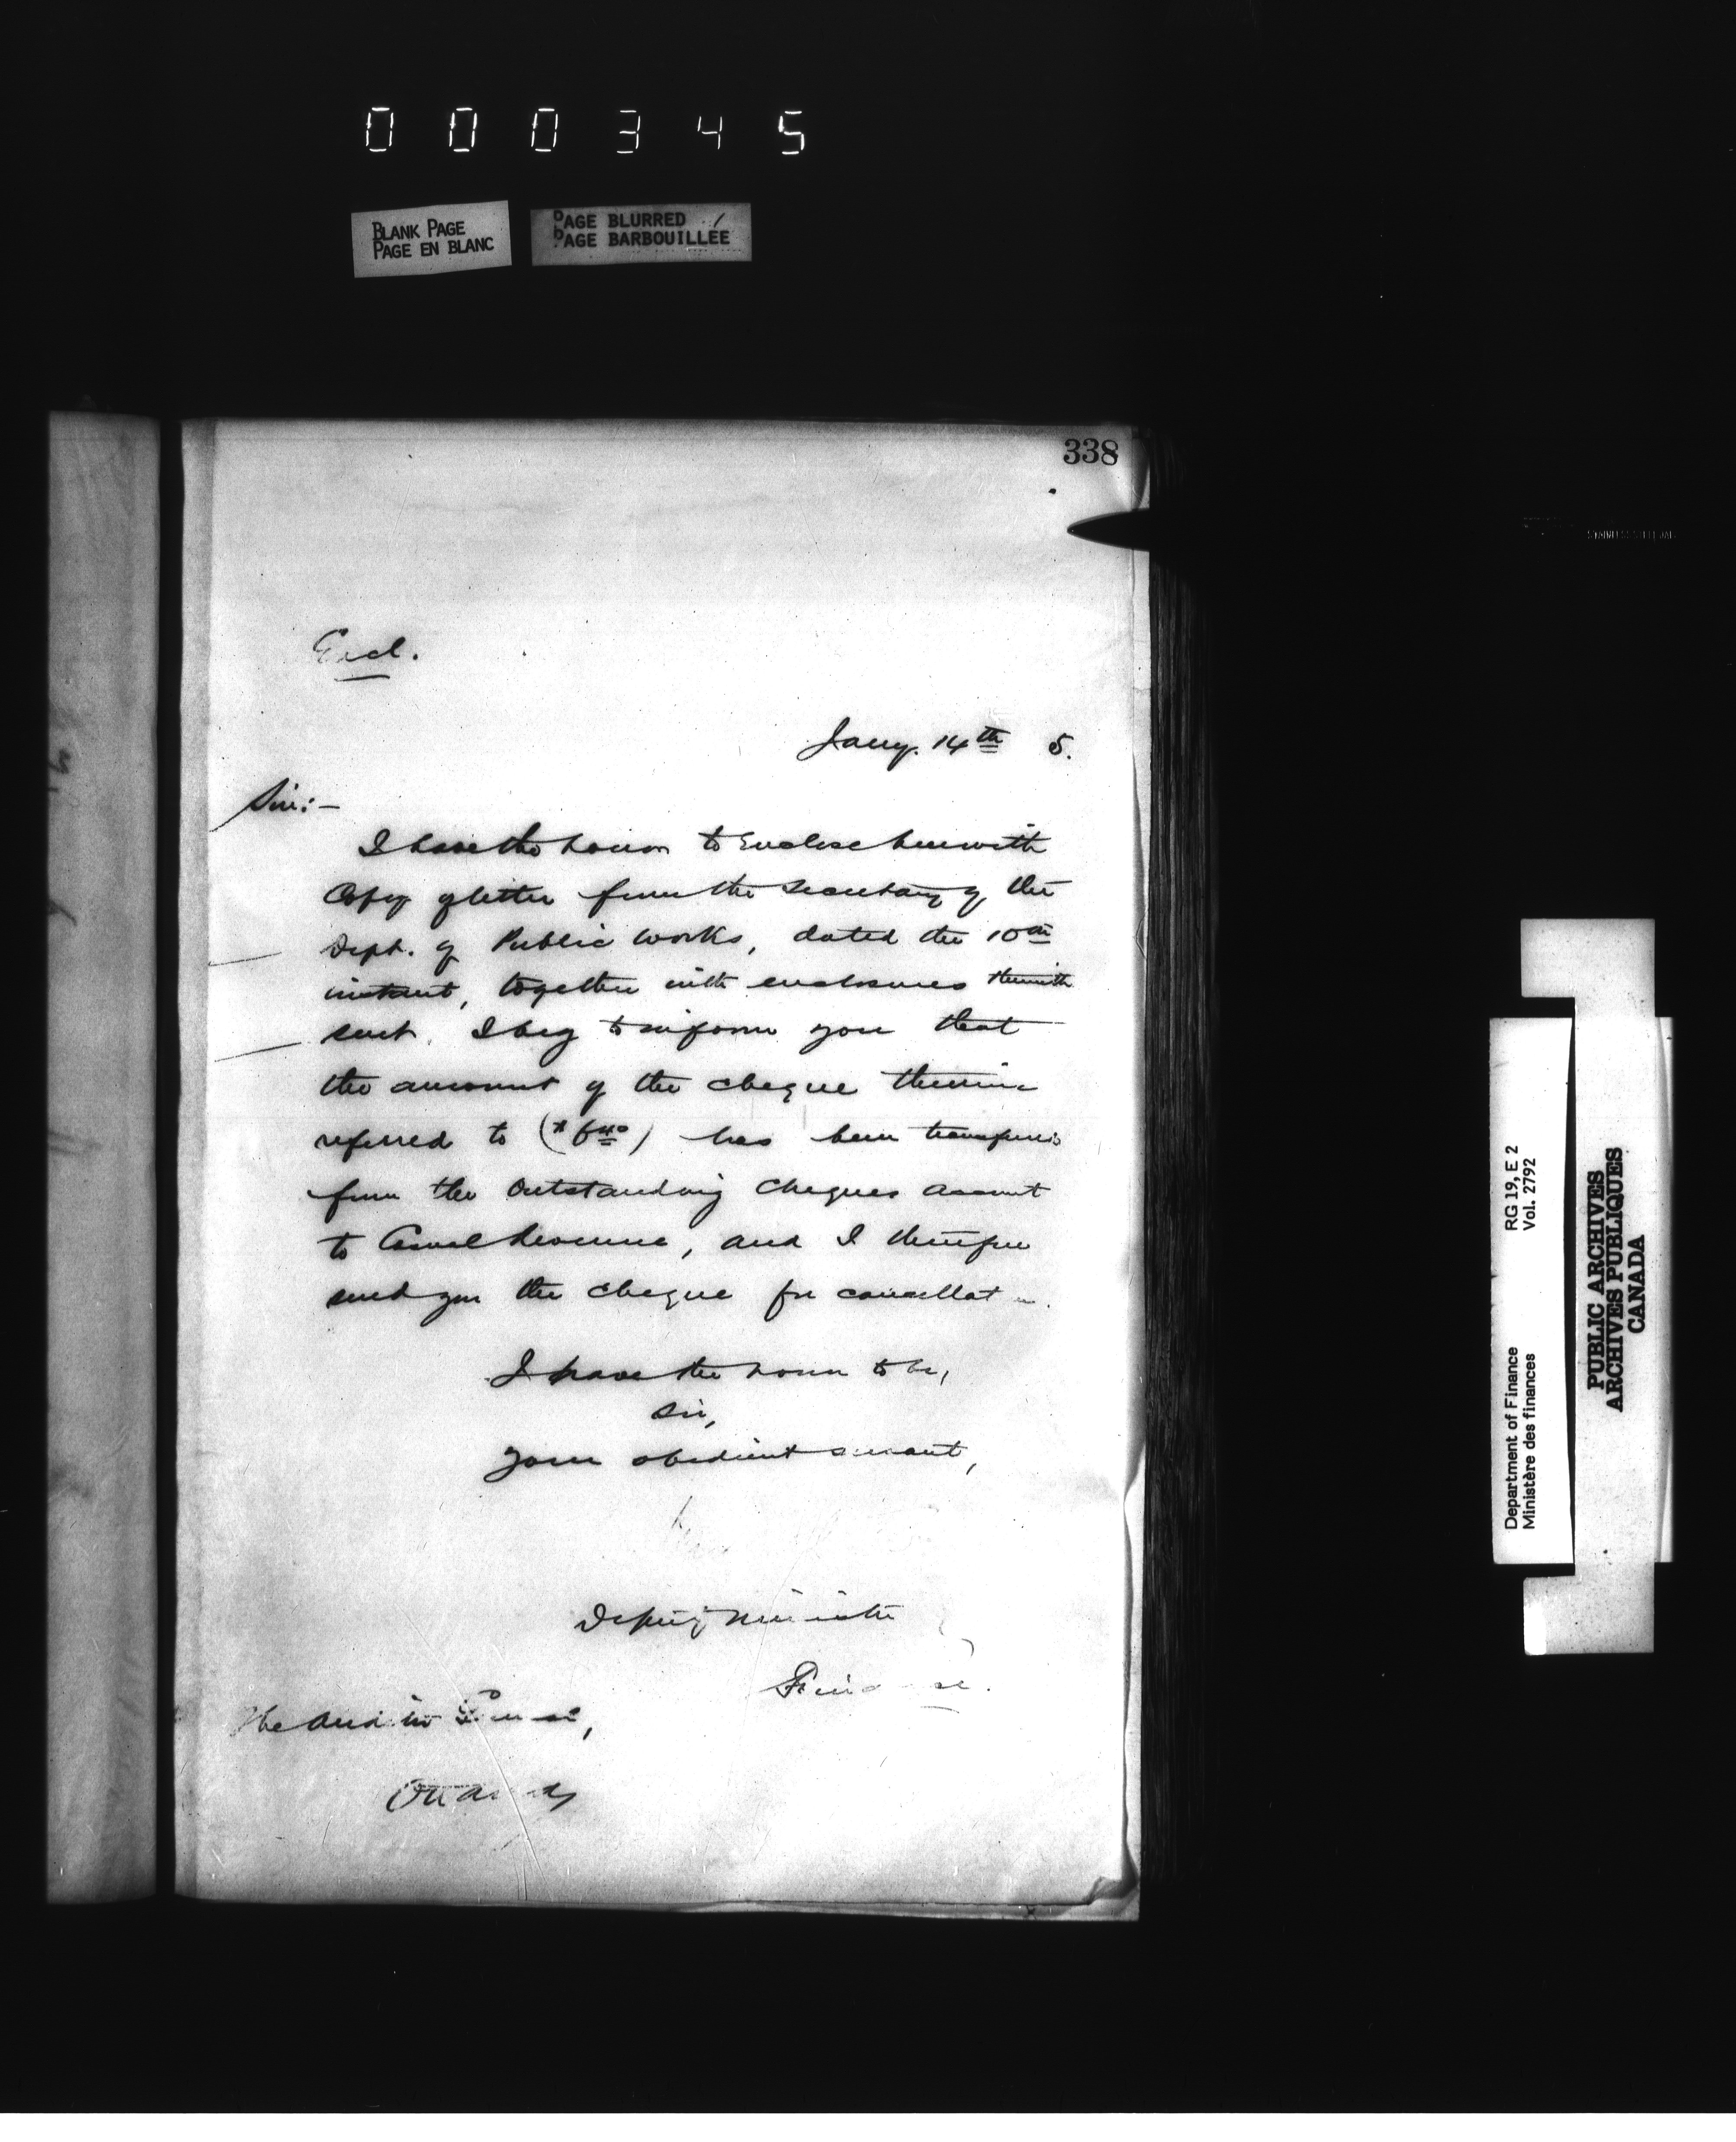 000345
BLANK PAGE
PAGE EN BLANC
PAGE BLURRED
PAGE BARBOUILLÉE
338
Encl.
Jany. 14th 5.
Sir:-
I have the honour to Enclose herewith
Copy of letter from the Secretary of the
Dept. of Public Works, dated the 10th
instant, together with enclosures therewith
sent. I beg to inform you that
the amount of the cheque therein
referred to has been transferred
from the Outstanding Cheques account
to Casual Revenue, and I therefore
send you the cheque for cancellation.
I have the honor to be,
Sir,
Your obedient servant,
Deputy Minister
Finance.
The Auditor General,
Ottawa
RG 19, E 2
Vol. 2792
Department of Finance
Ministère des finances
PUBLIC ARCHIVES
ARCHIVES PUBLIQUES
CANADA